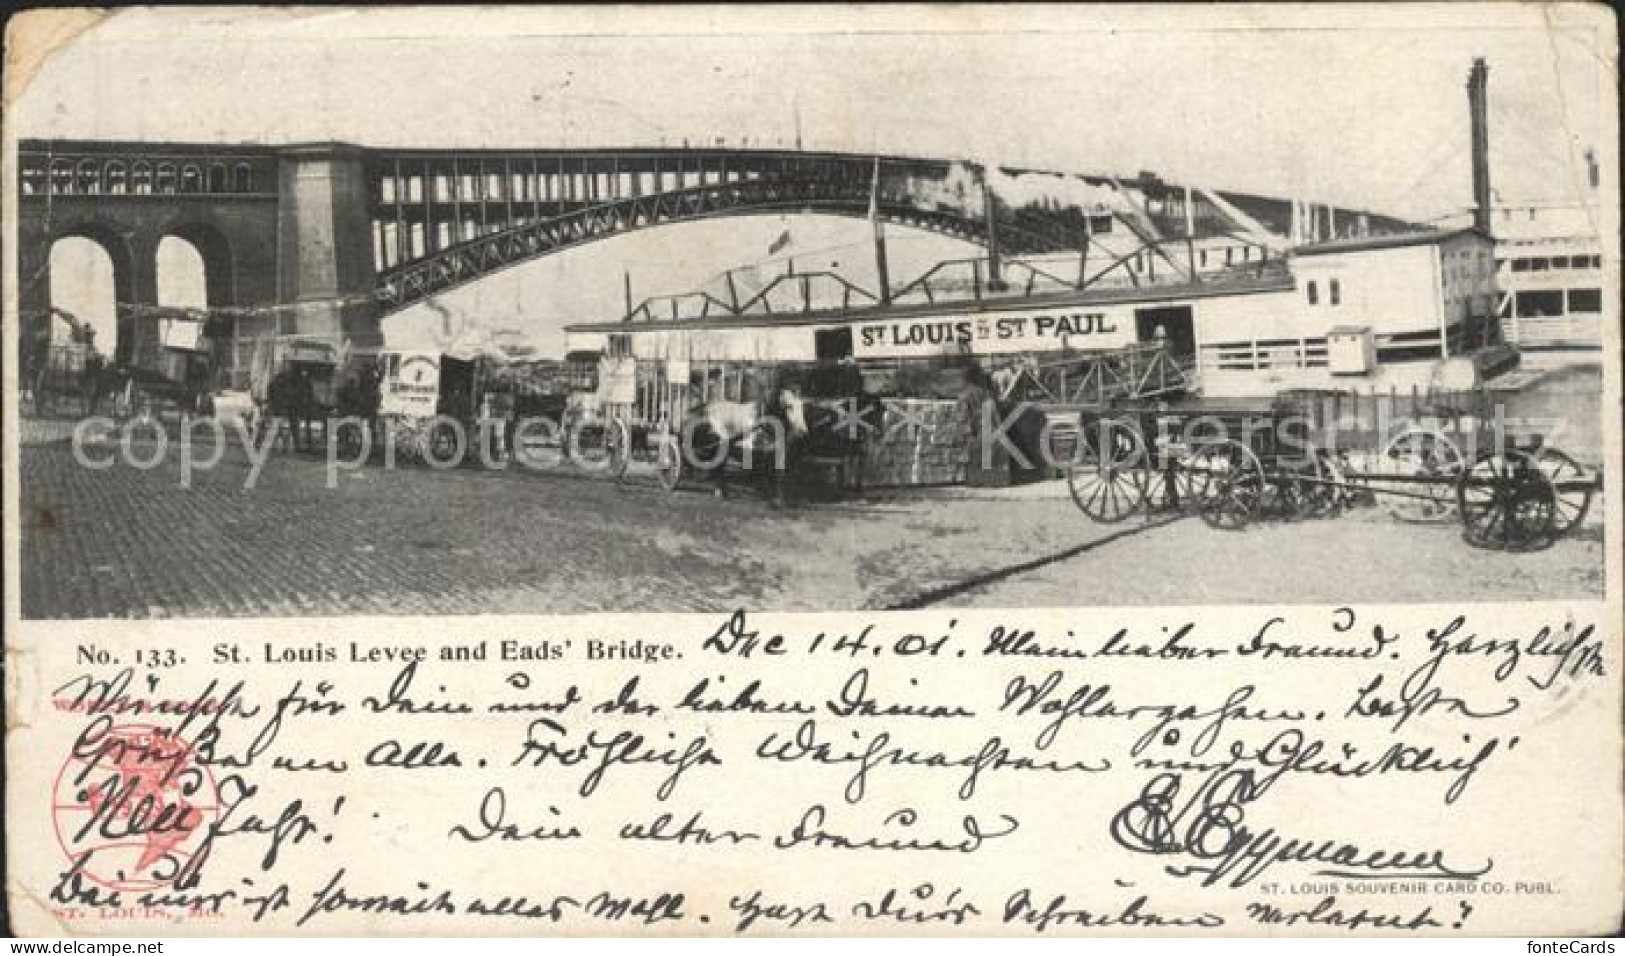 ST. LOUIS TO ST PAUL
copy protection ** Kopierschutz
No. 133. St. Louis Levee and Eads' Bridge. Dec 14. 01. Mein lieber Freund. Herzlichste
Wünsche für Dein und der lieben Deinen Wohlergehen. Beste
Grüße an Alle. Fröhliche Weihnachten und Glücklich'
Neu Jahr! Dein alter Freund E. Eggmann
Bei uns ist soweit alles wohl. Hast Du's Schreiben verlernt?
ST. LOUIS SOUVENIR CARD CO. PUBL.
ST. LOUIS, MO.
www.fontecards.com / No. 143
fonteCards